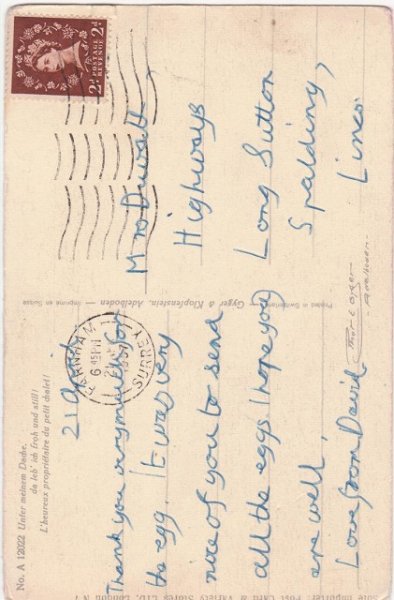 No. A 12022 Unter meinem Dache,
da leb' ich froh und still!
L'heureux propriétaire du petit chalet!
21 April
Thank you very much for
the egg. It was very
nice of you to send
all the eggs I hope you
are well.
Love from David
POSTAGE
REVENGE
2D 2D
FARNHAM
6 45 PM
SURREY
Printed in Switzerland — Gyger & Klopfenstein, Adelboden — Imprimé en Suisse
Mrs
Highways
Long Sutton
Spalding,
Lincs
Sole Importer: Post Card & Variety Stores LTD, London N 1